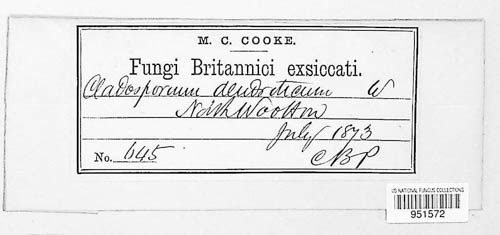 M. C. COOKE.
Fungi Britannici exsiccati.
Cladosporium dendriticum W
North Wootton
July 1873
No. 645 CBP
US NATIONAL FUNGUS COLLECTIONS
951572